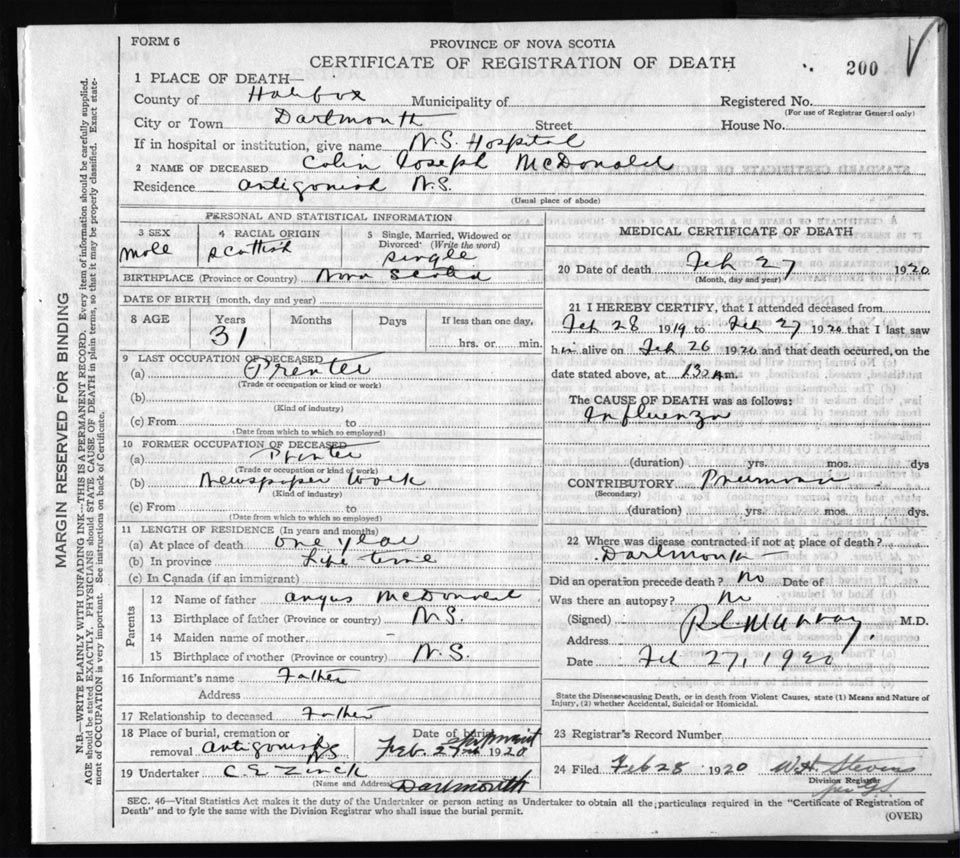 FORM 6
PROVINCE OF NOVA SCOTIA
CERTIFICATE OF REGISTRATION OF DEATH
200
1 PLACE OF DEATH—
County of Halifax Municipality of Registered No.
(For use of Registrar General only)
City or Town Dartmouth Street House No.
If in hospital or institution, give name N.S. Hospital
2 NAME OF DECEASED Colin Joseph McDonald
Residence Antigonish N.S.
(Usual place of abode)
PERSONAL AND STATISTICAL INFORMATION
3 SEX
male
4 RACIAL ORIGIN
Scottish
5 Single, Married, Widowed or Divorced (Write the word)
single
BIRTHPLACE (Province or Country) Nova Scotia
DATE OF BIRTH (month, day and year)
8 AGE Years Months Days If less than one day,
31 hrs. or min.
9 LAST OCCUPATION OF DECEASED
(a) Printer
(Trade or occupation or kind or work)
(b)
(Kind of industry)
(c) From to
(Date from which to which so employed)
10 FORMER OCCUPATION OF DECEASED
(a) Printer
(Trade or occupation or kind of work)
(b) Newspaper Work
(Kind of industry)
(c) From to
(Date from which to which so employed)
11 LENGTH OF RESIDENCE (In years and months)
(a) At place of death one year
(b) In province Life time
(c) In Canada (if an immigrant)
Parents
12 Name of father Angus McDonald
13 Birthplace of father (Province or country) N.S.
14 Maiden name of mother –
15 Birthplace of mother (Province or country) N.S.
16 Informant's name Father
Address
17 Relationship to deceased Father
18 Place of burial, cremation or Date of burial
removal Antigonish NS Feb. 1920
19 Undertaker C. E. Zinck
(Name and Address) Dartmouth
MEDICAL CERTIFICATE OF DEATH
20 Date of death Feb 27 1920
(Month, day and year)
21 I HEREBY CERTIFY, that I attended deceased from
Feb 28 1919 to Feb 27 1920 that I last saw
him alive on Feb 26 1920 and that death occurred, on the
date stated above, at 130 A m.
The CAUSE OF DEATH was as follows:
Influenza
(duration) yrs. mos. dys
CONTRIBUTORY Pneumonia
(Secondary)
(duration) yrs. mos. dys.
22 Where was disease contracted if not at place of death?
Dartmouth
Did an operation precede death? No Date of
Was there an autopsy? No
(Signed) Murray, M.D.
Address
Date Feb 27, 1920
State the Disease causing Death, or in death from Violent Causes, state (1) Means and Nature of
Injury, (2) whether Accidental, Suicidal or Homicidal.
23 Registrar's Record Number
24 Filed Feb 28 1920 W H Stevens
Division Registrar
SEC. 46—Vital Statistics Act makes it the duty of the Undertaker or person acting as Undertaker to obtain all the particulars required in the "Certificate of Registration of
Death" and to fyle the same with the Division Registrar who shall issue the burial permit.
(OVER)
MARGIN RESERVED FOR BINDING
N.B.—WRITE PLAINLY WITH UNFADING INK—THIS IS A PERMANENT RECORD. Every item of information should be carefully supplied.
AGE should be stated EXACTLY. PHYSICIANS should STATE CAUSE OF DEATH in plain terms, so that it may be properly classified. Exact state-
ment of OCCUPATION is very important. See instructions on back of Certificate.